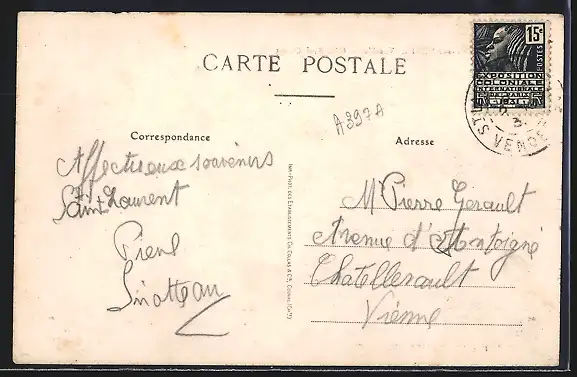 CARTE POSTALE
15c
POSTES
EXPOSITION
COLONIALE
INTERNATIONALE
PARIS 1931
ST VENO
A397A
Correspondance
Adresse
Affectueux souvenirs
Saint Laurent
Pierre
IMP.-PHOT. DES ETABLISSEMENTS CH. COLLAS & Cie, COGNAC (Cette)
M Pierre Gerault
Avenue d'
Chatellerault
Vienne